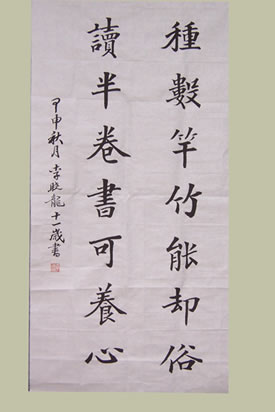 種數竿竹能却俗
讀半卷書可養心
甲申秋月李收龍十一歲書